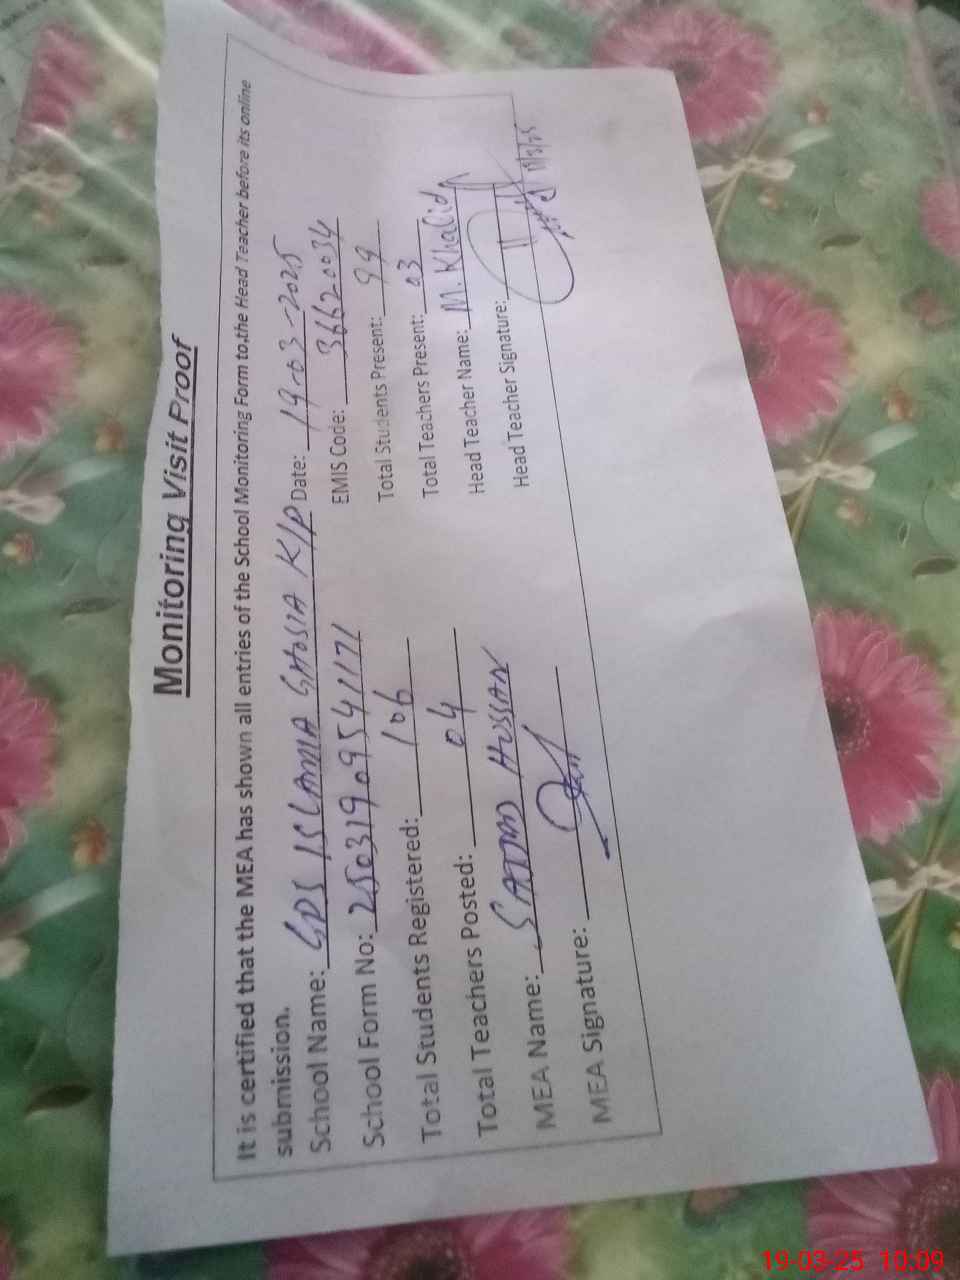 Monitoring Visit Proof
It is certified that the MEA has shown all entries of the School Monitoring Form to,the Head Teacher before its online
submission.
School Name: GPS ISLAMIA GHOSIA K/P Date: 19-03-2025
School Form No: 25031909541171 EMIS Code: 36620034
Total Students Registered: 106 Total Students Present: 99
Total Teachers Posted: 04 Total Teachers Present: 03
MEA Name: HUSSAN Head Teacher Name: M. Khalid
MEA Signature: Head Teacher Signature:
19-03-25 10:09